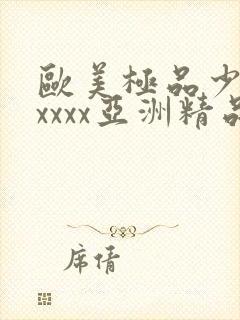 歐美極品少
xxxx亞洲精品
席倩